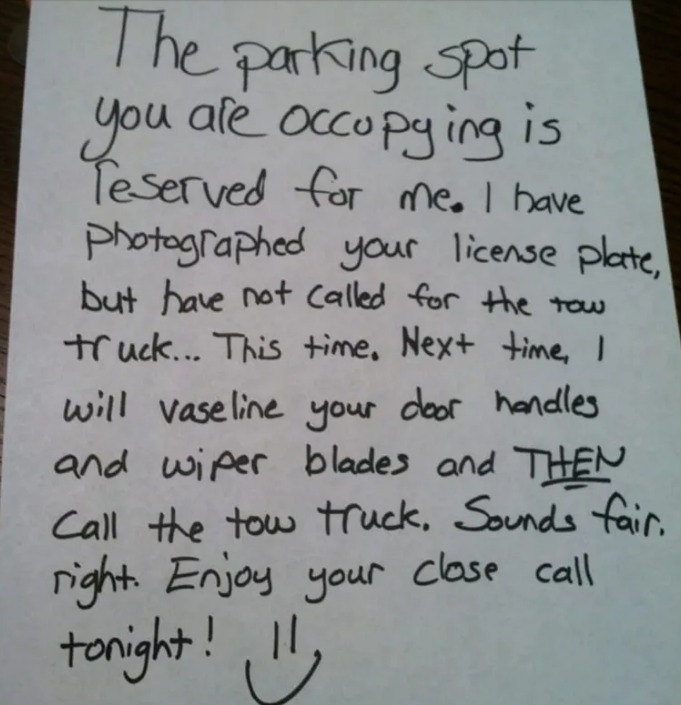 The parking spot
you are occupying is
reserved for me. I have
photographed your license plate,
but have not called for the tow
truck... This time. Next time, I
will vaseline your door handles
and wiper blades and THEN
Call the tow truck. Sounds fair.
right. Enjoy your close call
tonight!